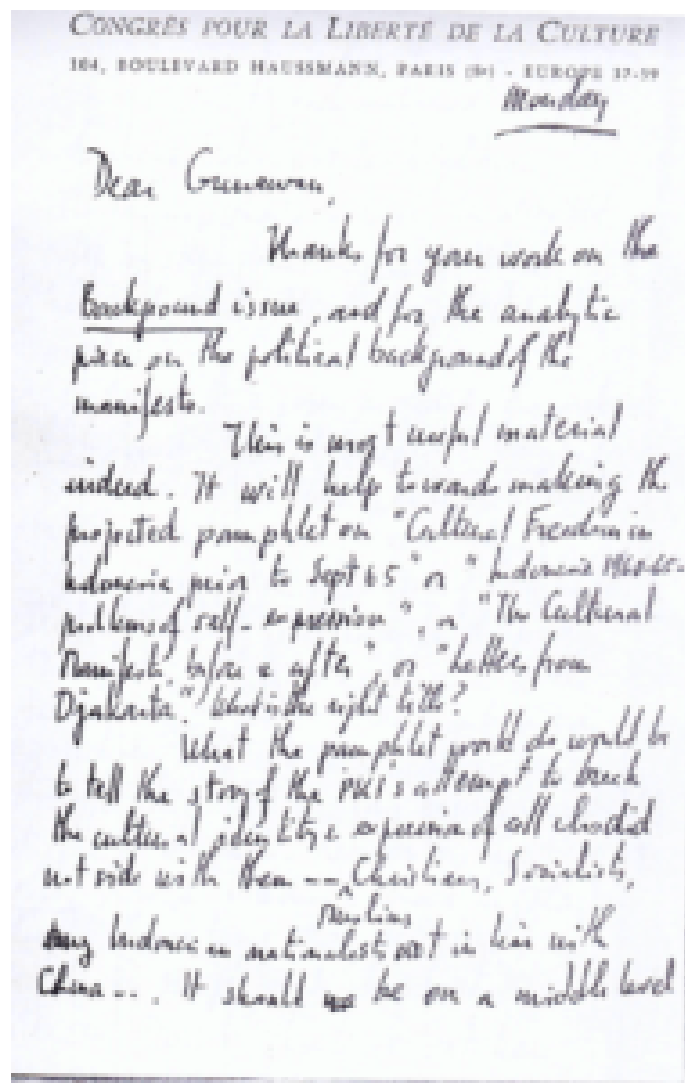 CONGRÈS POUR LA LIBERTÉ DE LA CULTURE
104, BOULEVARD HAUSSMANN, PARIS (8e) - EUROPE 27-59
Monday
Dear Gunawan,
Thanks for your work on the
Background issue, and for the analytic
piece on the political background of the
manifesto.
This is most useful material
indeed. It will help towards making the
projected pamphlet on "Cultural Freedom in
Indonesia prior to Sept 65" or "Indonesia 1960-65-
problems of self-expression", or "The Cultural
Manifesto before & after", or "Letter from
Djakarta". What is the right title?
What the pamphlet would do would be
to tell the story of the PKI's attempt to break
the cultural identity & expression of all who did
not side with them -- Christians, Socialists,
Muslims
any Indonesian nationalists not in line with
China -- . It should be on a middle level